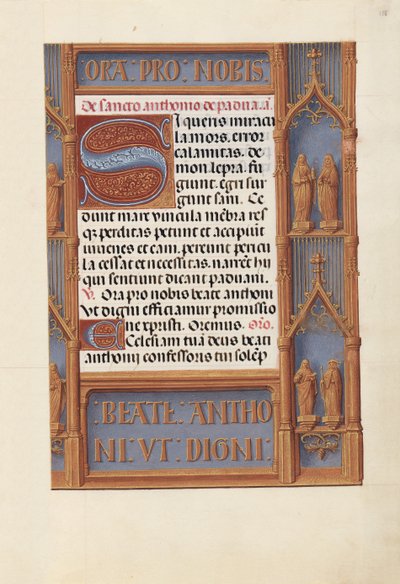 ORA: PRO: NOBIS
De sancto anthonio de padua. a.
Si queris miracu
la mors, error
calamitas, de
mon lepra, fu
giunt, egri sur
gunt sani. Ce
dunt mare vincula mēbra res
qz perditas petunt et accipiūt
iuuenes et cani, pereunt pericu
la cessat et necessitas, narrēt hii
qui sentiunt dicant paduani.
V. Ora pro nobis beate anthoni
Vt digni efficiamur promissio
ne xpristi. Oremus. Orō.
Ecclesiam tuā deus beati
anthonij confessoris tui solēp
:BEATE: ANTHO
NI: VT: DIGNI: